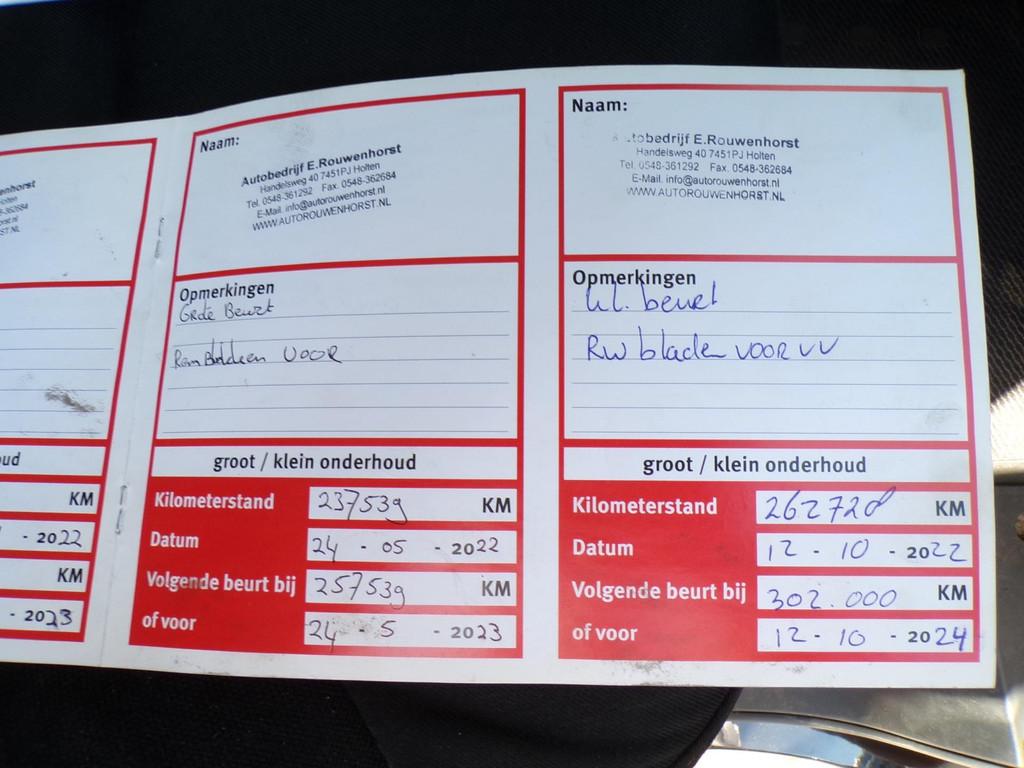 enhorst
Holten
8-362684
orst.nl
ST.NL
ud
KM
- 2022
KM
- 2023
Naam:
Autobedrijf E.Rouwenhorst
Handelsweg 40 7451PJ Holten
Tel. 0548-361292 Fax. 0548-362684
E-Mail. info@autorouwenhorst.nl
WWW.AUTOROUWENHORST.NL
Opmerkingen
Grote Beurt
Remblokken VOOR
groot / klein onderhoud
Kilometerstand 237539 KM
Datum 24 - 05 - 2022
Volgende beurt bij 257539 KM
of voor 24 - 5 - 2023
Naam:
Autobedrijf E.Rouwenhorst
Handelsweg 40 7451PJ Holten
Tel. 0548-361292 Fax. 0548-362684
E-Mail. info@autorouwenhorst.nl
WWW.AUTOROUWENHORST.NL
Opmerkingen
kl. beurt
RW bladen VOOR VV
groot / klein onderhoud
Kilometerstand 262728 KM
Datum 12 - 10 - 2022
Volgende beurt bij 302.000 KM
of voor 12 - 10 - 2024